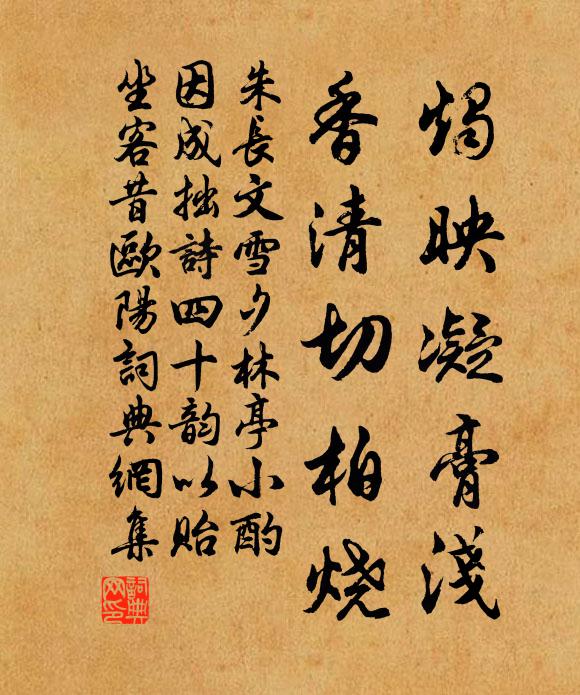 燭映凝膏淺
香清切柏燒
朱長文雪夕林亭小酌
因成拙詩四十韵以貽
坐客昔歐陽詞典網集
詞典网印